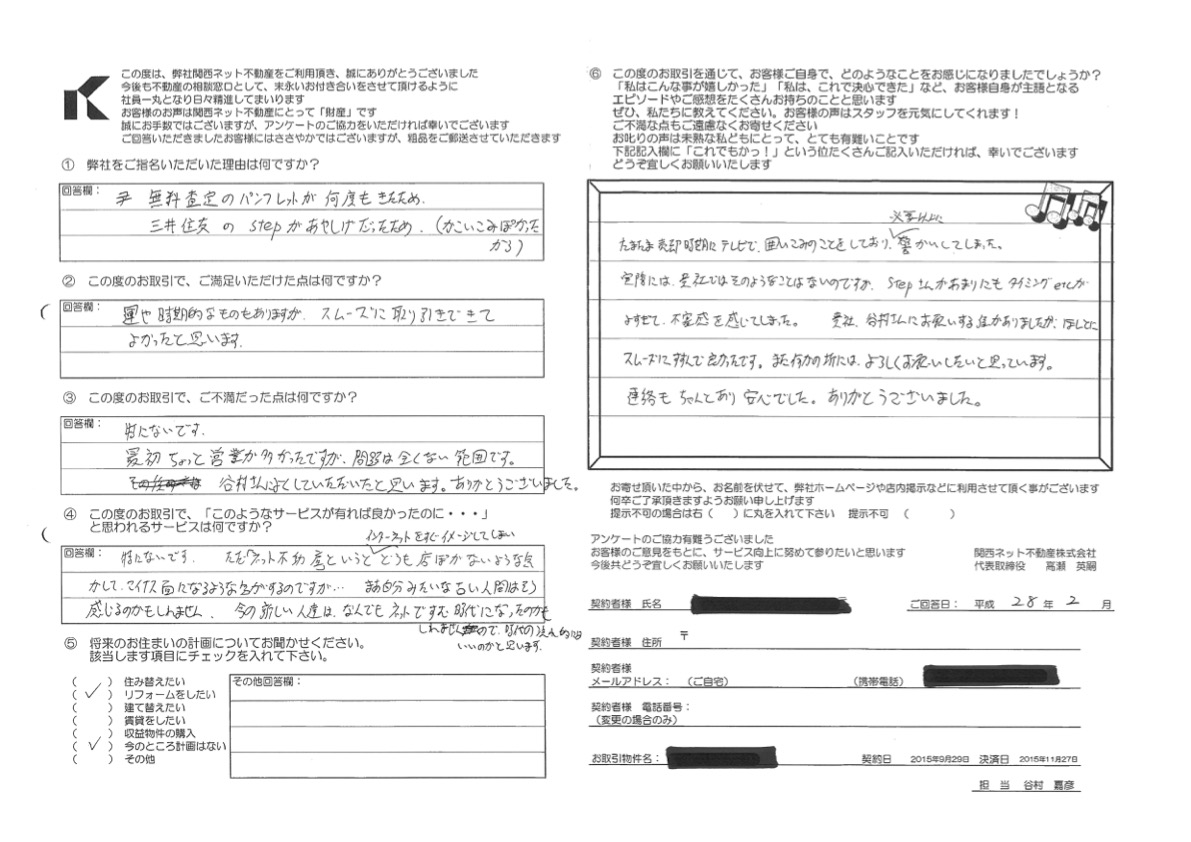 この度は、弊社関西ネット不動産をご利用頂き、誠にありがとうございました
今後も不動産の相談窓口として、末永いお付き合いをさせて頂けるように
社員一丸となり日々精進してまいります
お客様のお声は関西ネット不動産にとって「財産」です
誠にお手数ではございますが、アンケートのご協力をいただければ幸いでございます
ご回答いただきましたお客様にはささやかではございますが、粗品をご郵送させていただきます
① 弊社をご指名いただいた理由は何ですか?
回答欄:
無料査定のパンフレットが何度もきたため。
三井住友の stepがあやしげだったため。(かこいこみぽかった
から)
② この度のお取引で、ご満足いただけた点は何ですか?
回答欄:
運や時期的なものもありますが、スムーズに取り引きできて
よかったと思います。
③ この度のお取引で、ご不満だった点は何ですか?
回答欄:
特にないです。
最初ちょっと営業が多かったですが、問題は全くない範囲です。
谷村さんはよくしていただいたと思います。ありがとうございました。
④ この度のお取引で、「このようなサービスが有れば良かったのに・・・」
と思われるサービスは何ですか?
インターネットをすぐイメージしてしまい
回答欄:
特にないです。 ただ「ネット不動産」というと どうも店ぽかないような気
がして、マイナス面になるような気がするのですが… まあ自分みたいな古い人間はそう
感じるのかもしれません。 今の新しい人達は、なんでもネットですむ時代になったのかも
しれませんので、時代の流れ的には
いいのかと思います。
⑤ 将来のお住まいの計画についてお聞かせください。
該当します項目にチェックを入れて下さい。
( ) 住み替えたい
(✓) リフォームをしたい
( ) 建て替えたい
( ) 賃貸をしたい
( ) 収益物件の購入
(✓) 今のところ計画はない
( ) その他
その他回答欄:
⑥ この度のお取引を通じて、お客様ご自身で、どのようなことをお感じになりましたでしょうか?
「私はこんな事が嬉しかった」「私は、これで決心できた」など、お客様自身が主語となる
エピソードやご感想をたくさんお持ちのことと思います
ぜひ、私たちに教えてください。お客様の声はスタッフを元気にしてくれます!
ご不満な点もご遠慮なくお寄せください
お叱りの声は未熟な私どもにとって、とても有難いことです
下記記入欄に「これでもかっ!」という位たくさんご記入いただければ、幸いでございます
どうぞ宜しくお願いいたします
必要以上に
たまたま売却時期にテレビで、囲いこみのことをしており、警かいしてしました。
実際には、貴社ではそのようなことはないのですが、stepさんがあまりにもタイミングetcが
よすぎて、不安感を感じてしました。 貴社、谷村さんにお願いする形がありましたが、ほんとに
スムーズにすすんで良かったです。また何かの折には、よろしくお願いしたいと思っています。
連絡もちゃんとあり安心でした。ありがとうございました。
お寄せ頂いた中から、お名前を伏せて、弊社ホームページや店内掲示などに利用させて頂く事がございます
何卒ご了承頂きますようお願い申し上げます
提示不可の場合は右( )に丸を入れて下さい 提示不可 ( )
アンケートのご協力有難うございました
お客様のご意見をもとに、サービス向上に努めて参りたいと思います
今後共どうぞ宜しくお願いいたします
関西ネット不動産株式会社
代表取締役 高瀬 英嗣
契約者様 氏名
ご回答日: 平成 28 年 2 月
契約者様 住所 〒
契約者様
メールアドレス: (ご自宅) (携帯電話)
契約者様 電話番号:
(変更の場合のみ)
お取引物件名: 契約日 2015年9月29日 決済日 2015年11月27日
担 当 谷村 嘉彦